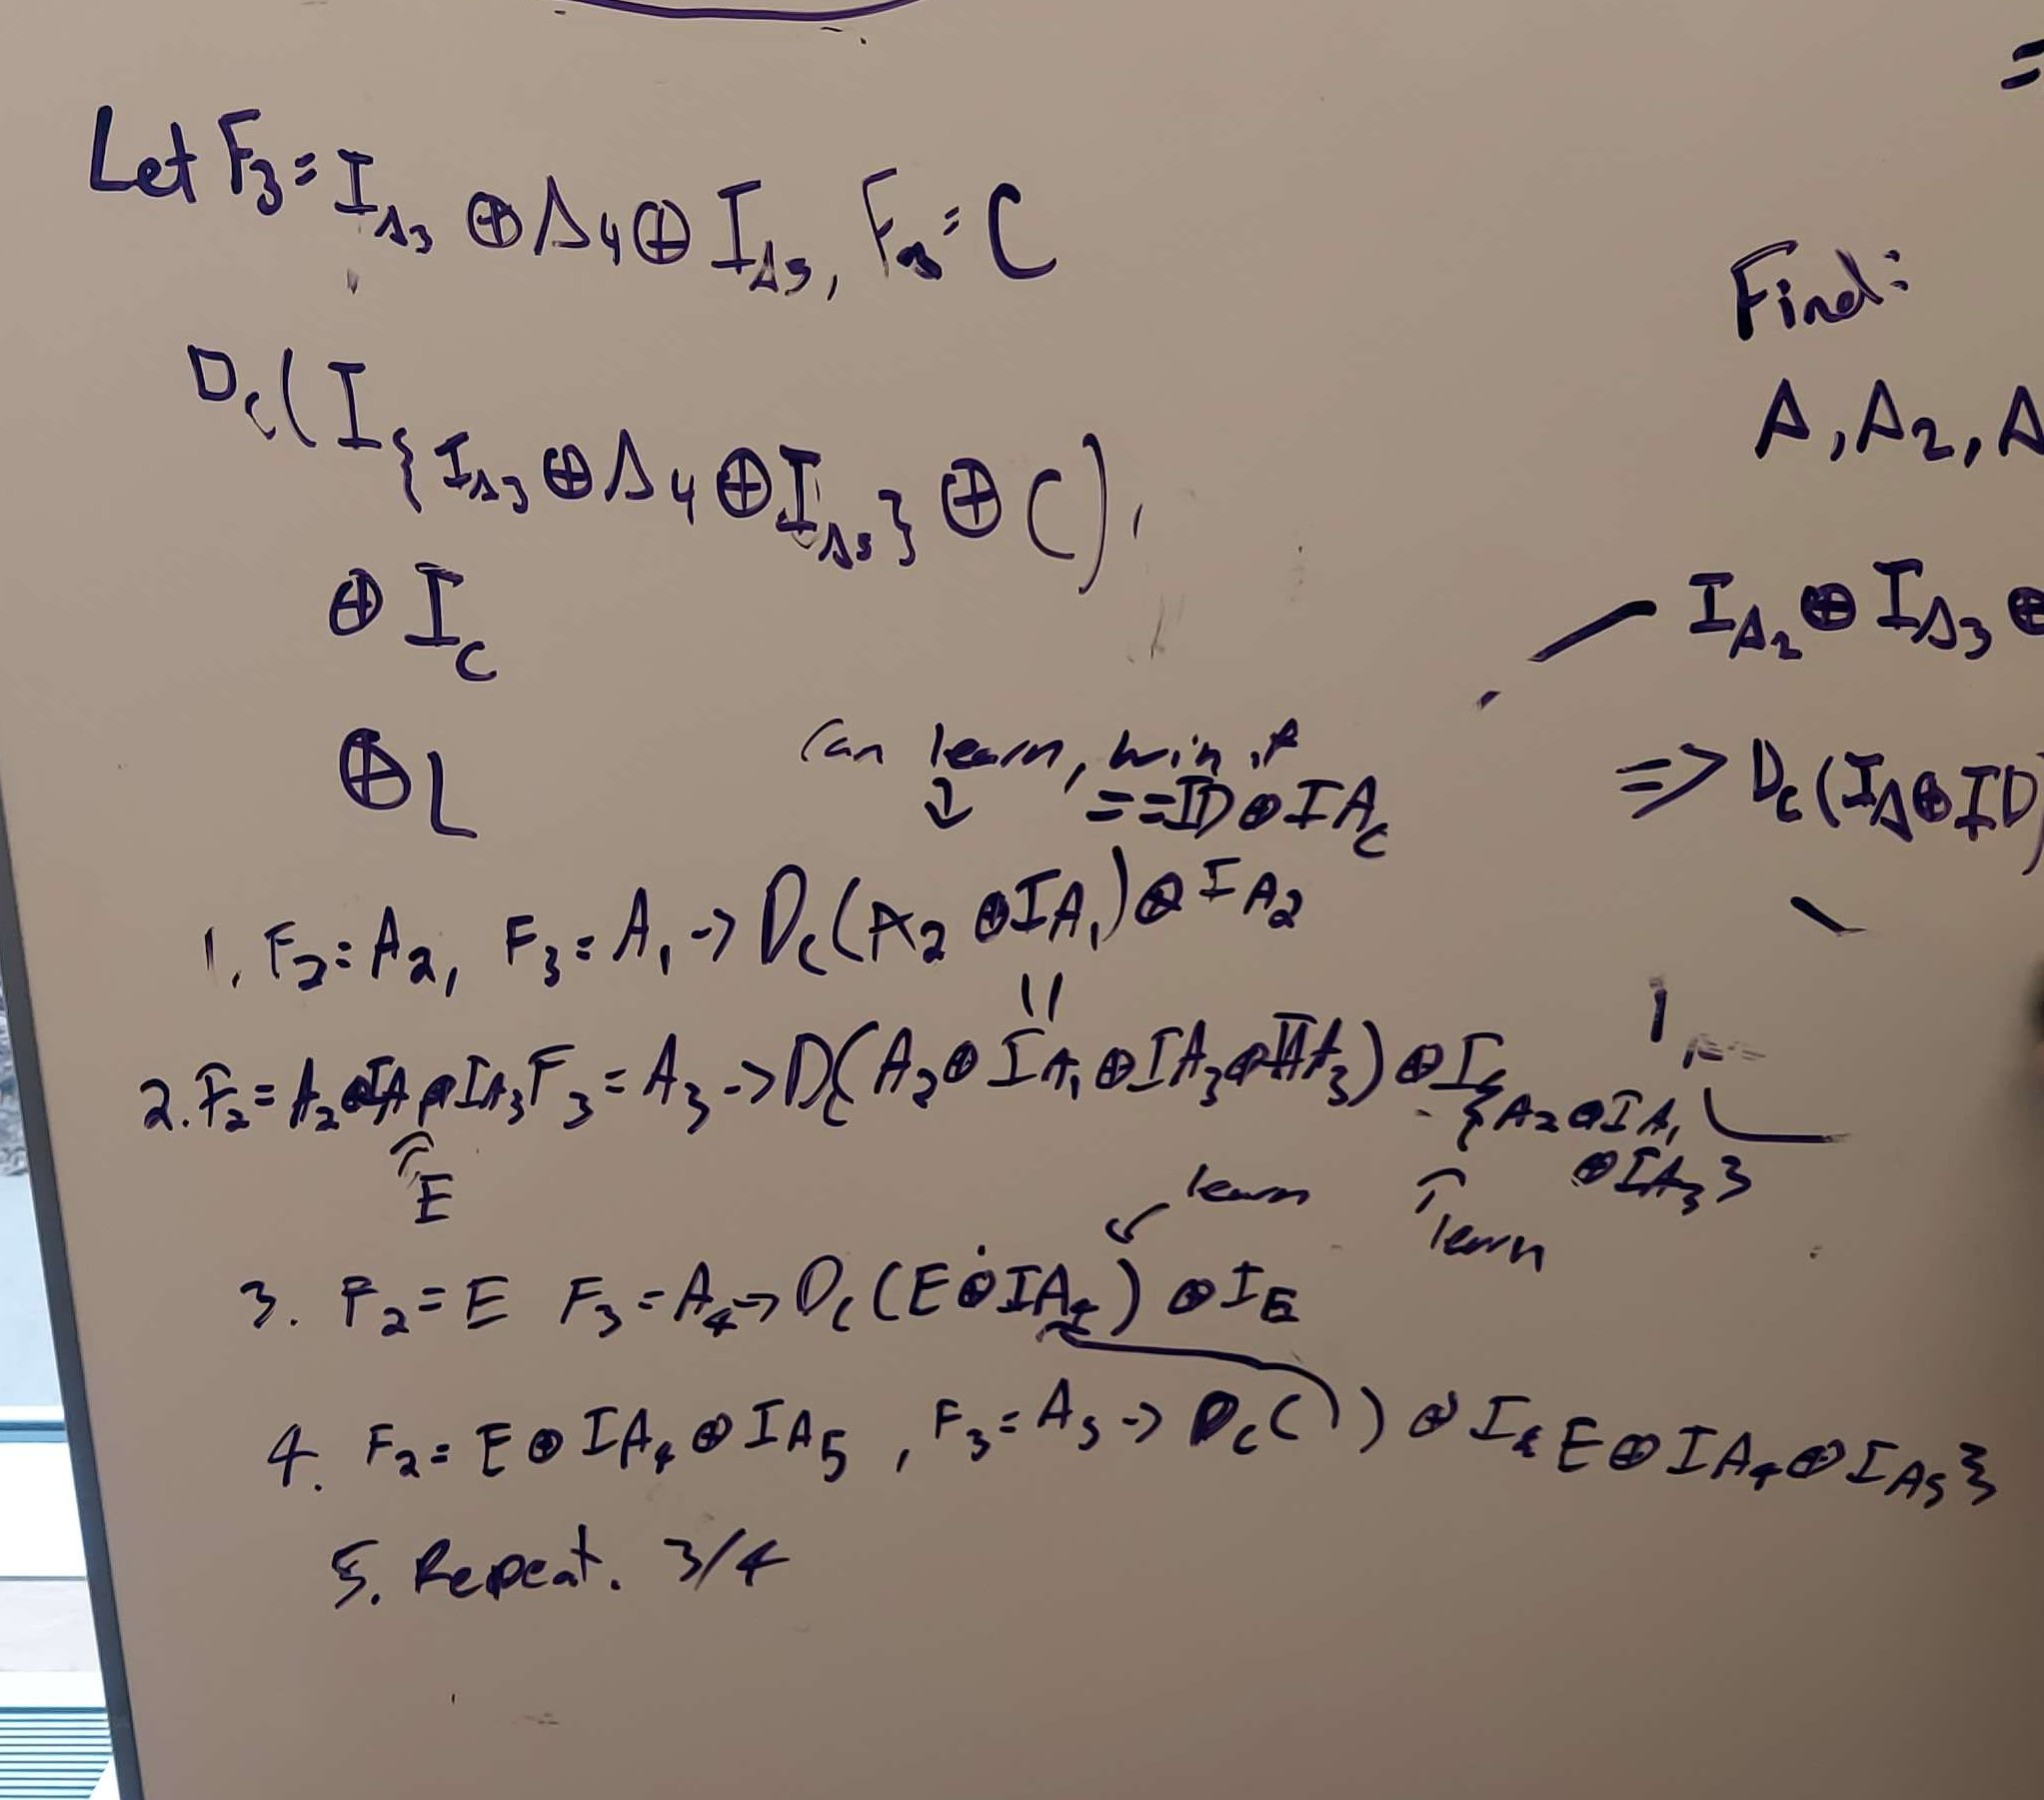 Let F₃ = I_A₃ ⊕ A₄ ⊕ I_A₅, F₂ = C
D_c(I_{I_A₃ ⊕ A₄ ⊕ I_A₅} ⊕ C)
⊕ I_C
⊕ L
Can learn, win if
↓ == ID ⊕ IA_C
1. F₂ = A₂, F₃ = A₁ -> D_c(A₂ ⊕ IA₁) ⊕ IA₂
||
2. F₂ = A₂ ⊕ IA₁ ⊕ IA₃ F₃ = A₃ -> D_c(A₂ ⊕ IA₁ ⊕ IA₃ ⊕ IA₃) ⊕ I_{A₂ ⊕ IA₁
⊕ IA₃}
E
learn
learn
3. F₂ = E F₃ = A₄ -> D_c(E ⊕ IA₄) ⊕ I_E
4. F₂ = E ⊕ IA₄ ⊕ IA₅, F₃ = A₅ -> D_c( ) ⊕ I_{E ⊕ IA₄ ⊕ IA₅}
5. Repeat. 3/4
=
Find:
A, A₂, A
I_A₂ ⊕ I_A₃ ⊕
=> D_c(I_A ⊕ ID)